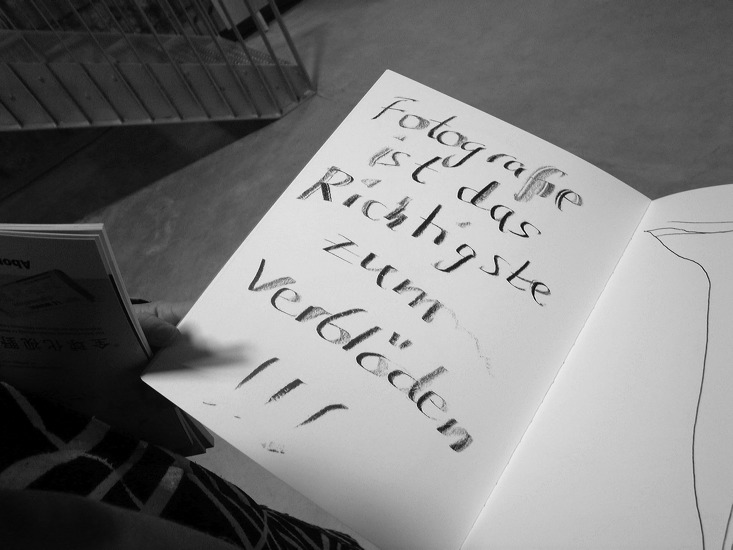 Fotografie
ist das
Richtigste
zum
Verblöden
!!!